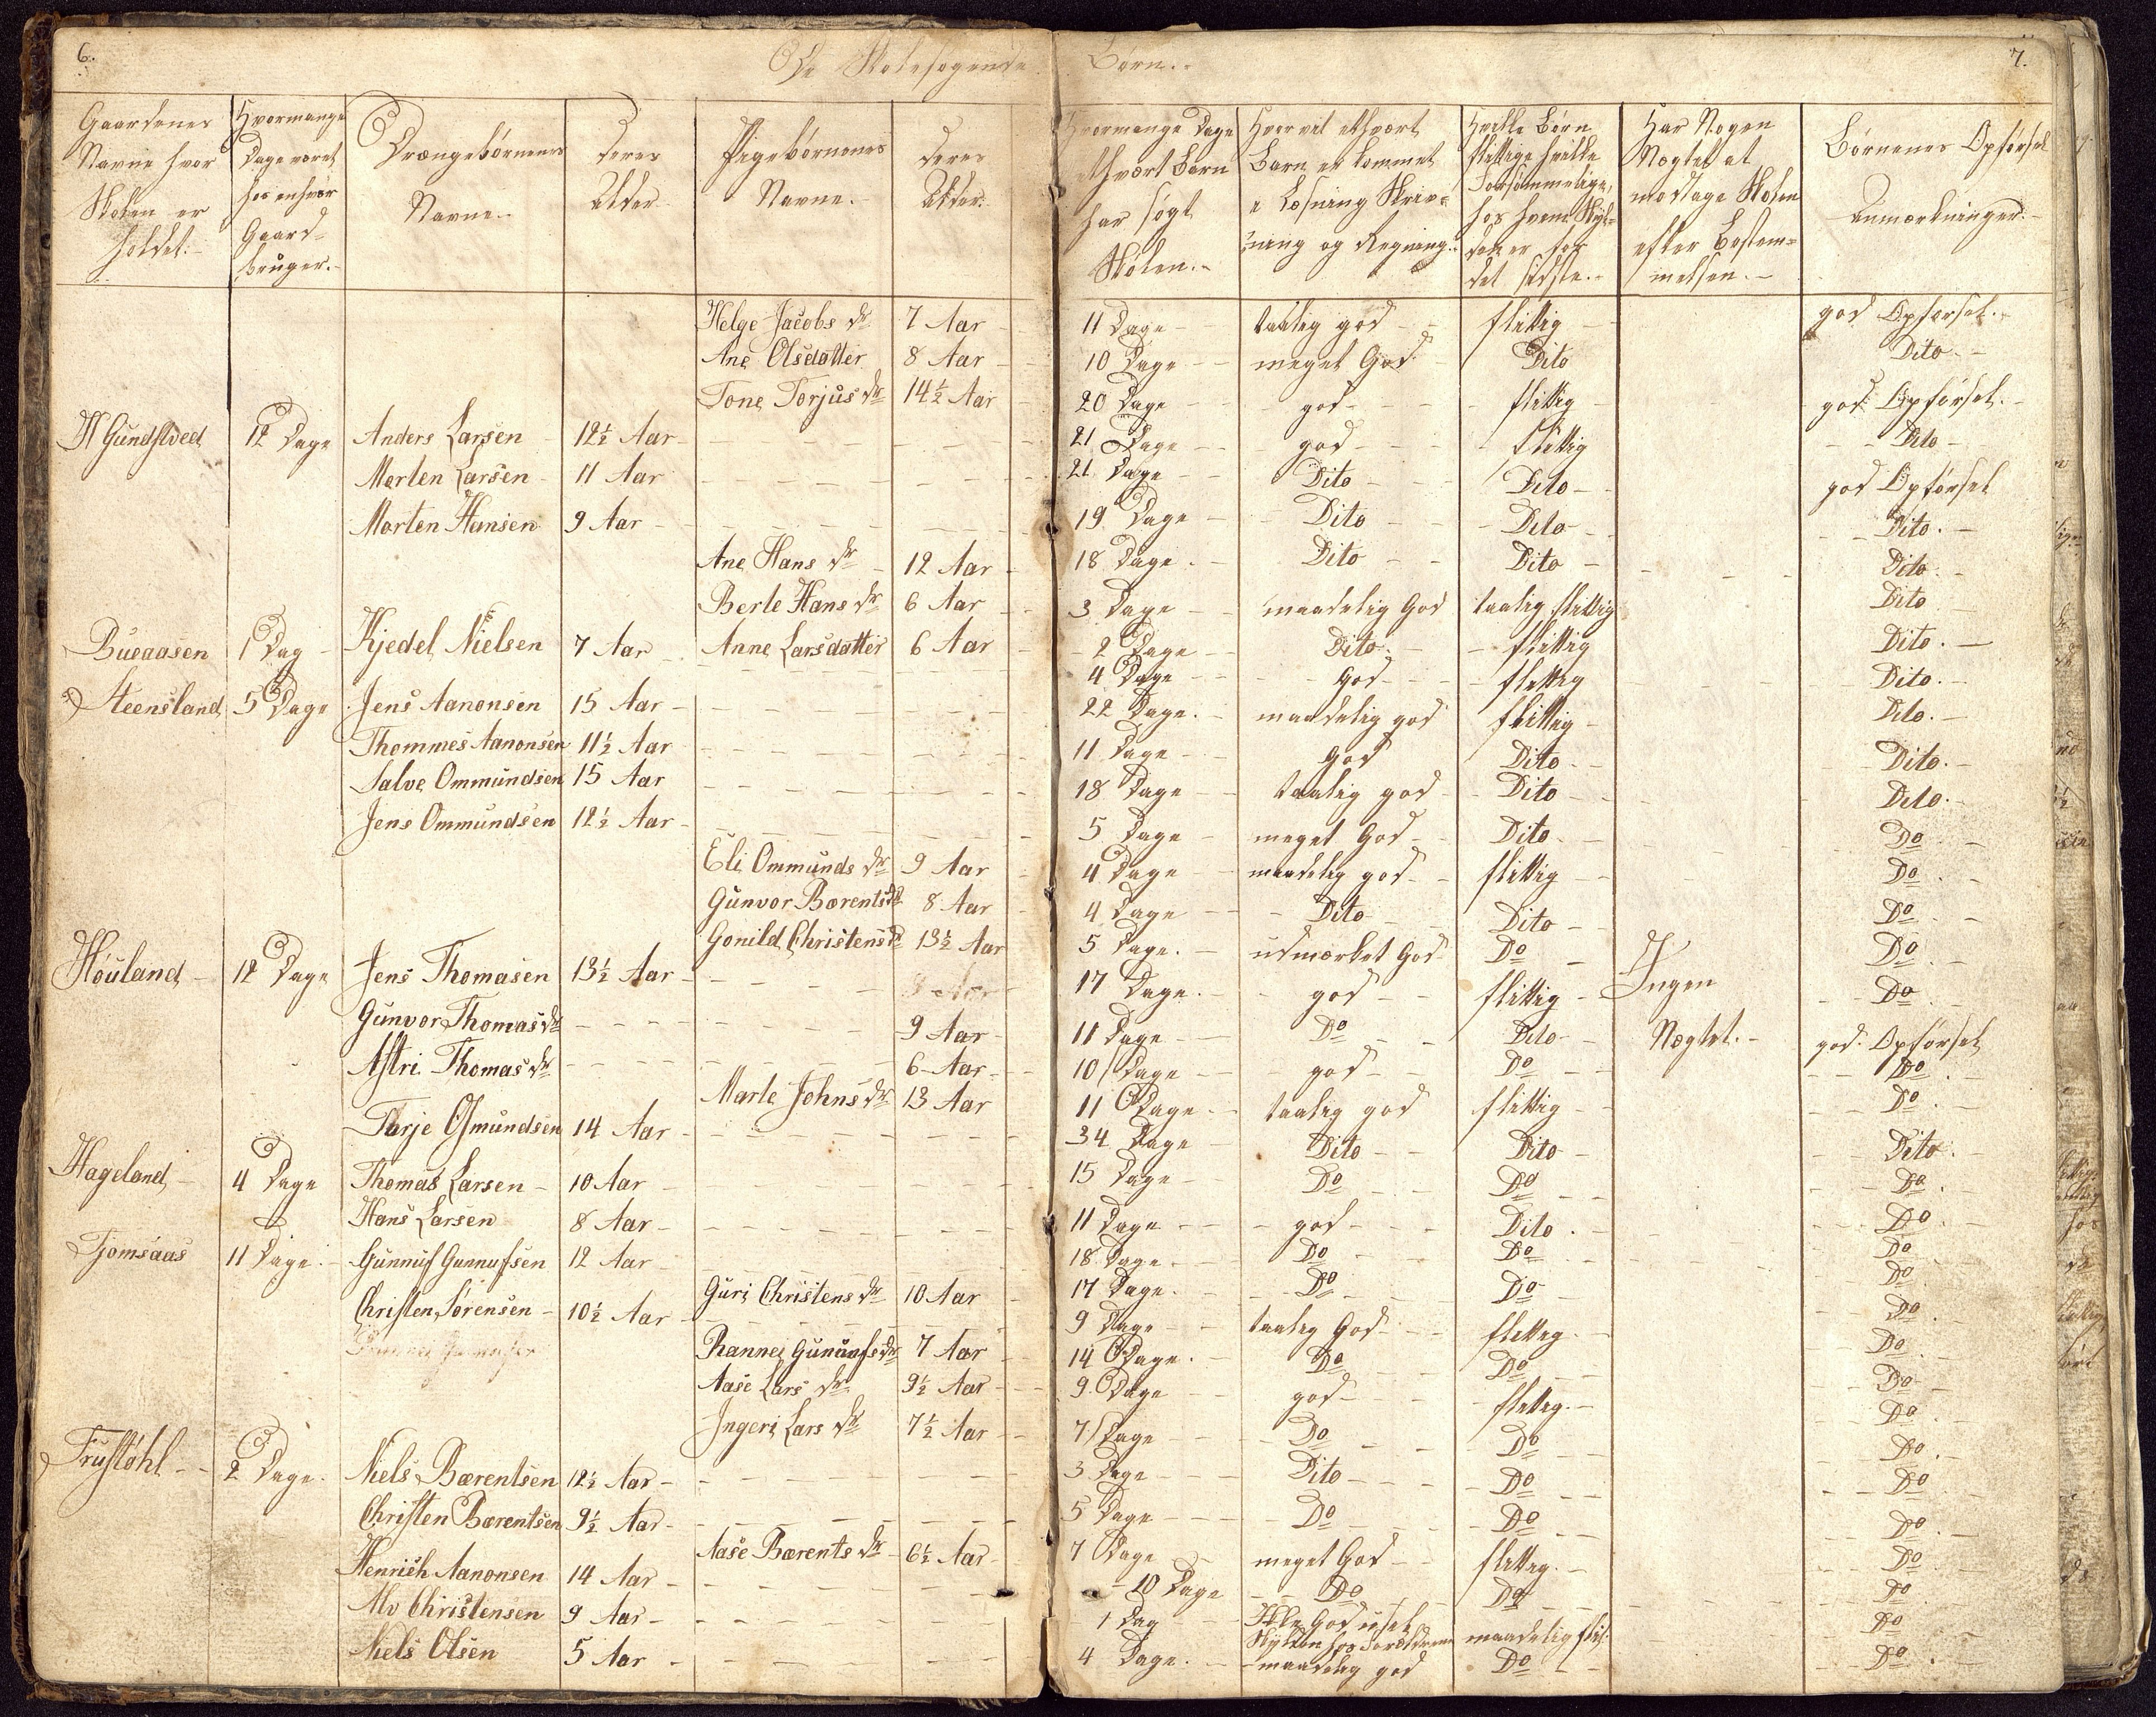 6.
De Skolesøgende Børn.
7.
Gaardenes Navne hvor Skolen er holdet.-
Hvormange Dage været hos enhver Gaard-bruger.-
Drængebørnenes Navne.-
Deres Alder
Pigebørnenes Navne.-
Deres Alder.-
Hvormange Dage ethvert Barn har søgt Skolen.-
Hvor vit ethvert Barn er kommet i Læsning Skriv=ning og Regning.-
Hvilke Børn flittige hvilke Forsømmelige, hos hvem Skyl=den er for det sidste.-
Har Nogen Nægtet at modtage Skolen efter Bestem=melsen.-
Børnenes Opførsel Anmærkninger.-
Helge Jacobs dr 7 Aar 11 Dage taalig god flittig god Opførsel.
Ane Olsdatter 8 Aar 10 Dage meget God Dito Dito
Tone Torjus dr 14½ Aar 20 Dage god flittig god Opførsel.
H Gundsteed 12 Dage Anders Larsen 12½ Aar 21 Dage god flittig Dito
Merten Larsen 11 Aar 21 Dage Dito Dito god Opførsel
Morten Hansen 9 Aar 19 Dage Dito Dito Dito.
Ane Hans dr 12 Aar 18 Dage. Dito Dito Dito.
Berte Hans dr 6 Aar 3 Dage maadelig God taalig flittig Dito
Bueaasen 1 Dag Kjedel Nielsen 7 Aar Anne Larsdatter 6 Aar 2 Dage Dito. flittig Dito.
4 Dage God flittig Dito.
Steensland 5 Dage Jens Aanonsen 15 Aar 22 Dage. maadelig god flittig Dito.
Thommes Aanonsen 11½ Aar 11 Dage God Dito Dito.
Salve Ommundsen 15 Aar 18 Dage taalig god Dito Dito.
Jens Ommundsen 12½ Aar 5 Dage meget God Dito Do
Eli Ommunds dr 9 Aar 4 Dage maadelig god flittig Do
Gunvor Bærents dr 8 Aar 4 Dage Dito Dito Do
Gonild Christens dr 13½ Aar 5 Dage. udmærket God Do Do
Høuland 12 Dage Jens Thomasen 13½ Aar 17 Dage. god flittig Ingen Do
Gunvor Thomas dr 9 Aar 11 Dage Do Dito Nægtet. god Opførsel
Astri Thomas dr 6 Aar 10 Dage god Do Do
Marte Johns dr 13 Aar 11 Dage taalig god flittig Do
Tarje Osmundsen 14 Aar 34 Dage Dito Dito Dito.
Hageland 4 Dage Thomas Larsen 10 Aar 15 Dage Do Do Do
Hans Larsen 8 Aar 11 Dage god Dito. Do
Tjomsaas 11 Dage. Gunnuf Gunnufsen 12 Aar 18 Dage. Do Do Do
Guri Christens dr 10 Aar 17 Dage. Do Do Do
Christen Sørensen 10½ Aar 9 Dage taalig God flittig. Do
Rannei Gunuufs dr 7 Aar 14 Dage. Do Do Do
Aase Lars dr 9½ Aar 9 Dage god flittig. Do
Ingeri Lars dr 7½ Aar 7 Dage Do Do Do
Frustøhl 2 Dage. Niels Bærentsen 12½ Aar 3 Dage Dito Do Do
Christen Bærentsen 9½ Aar 5 Dage Do Do Do
Aase Bærents dr 6½ Aar 7 Dage meget God flittig. Do
Henrich Aanonsen 14 Aar 10 Dage Do Do Do
Alv Christensen 9 Aar 1 Dag Skylden hos Forældrene maadelig flit. Do
Niels Olsen 5 Aar 4 Dage. maadelig god Do Do